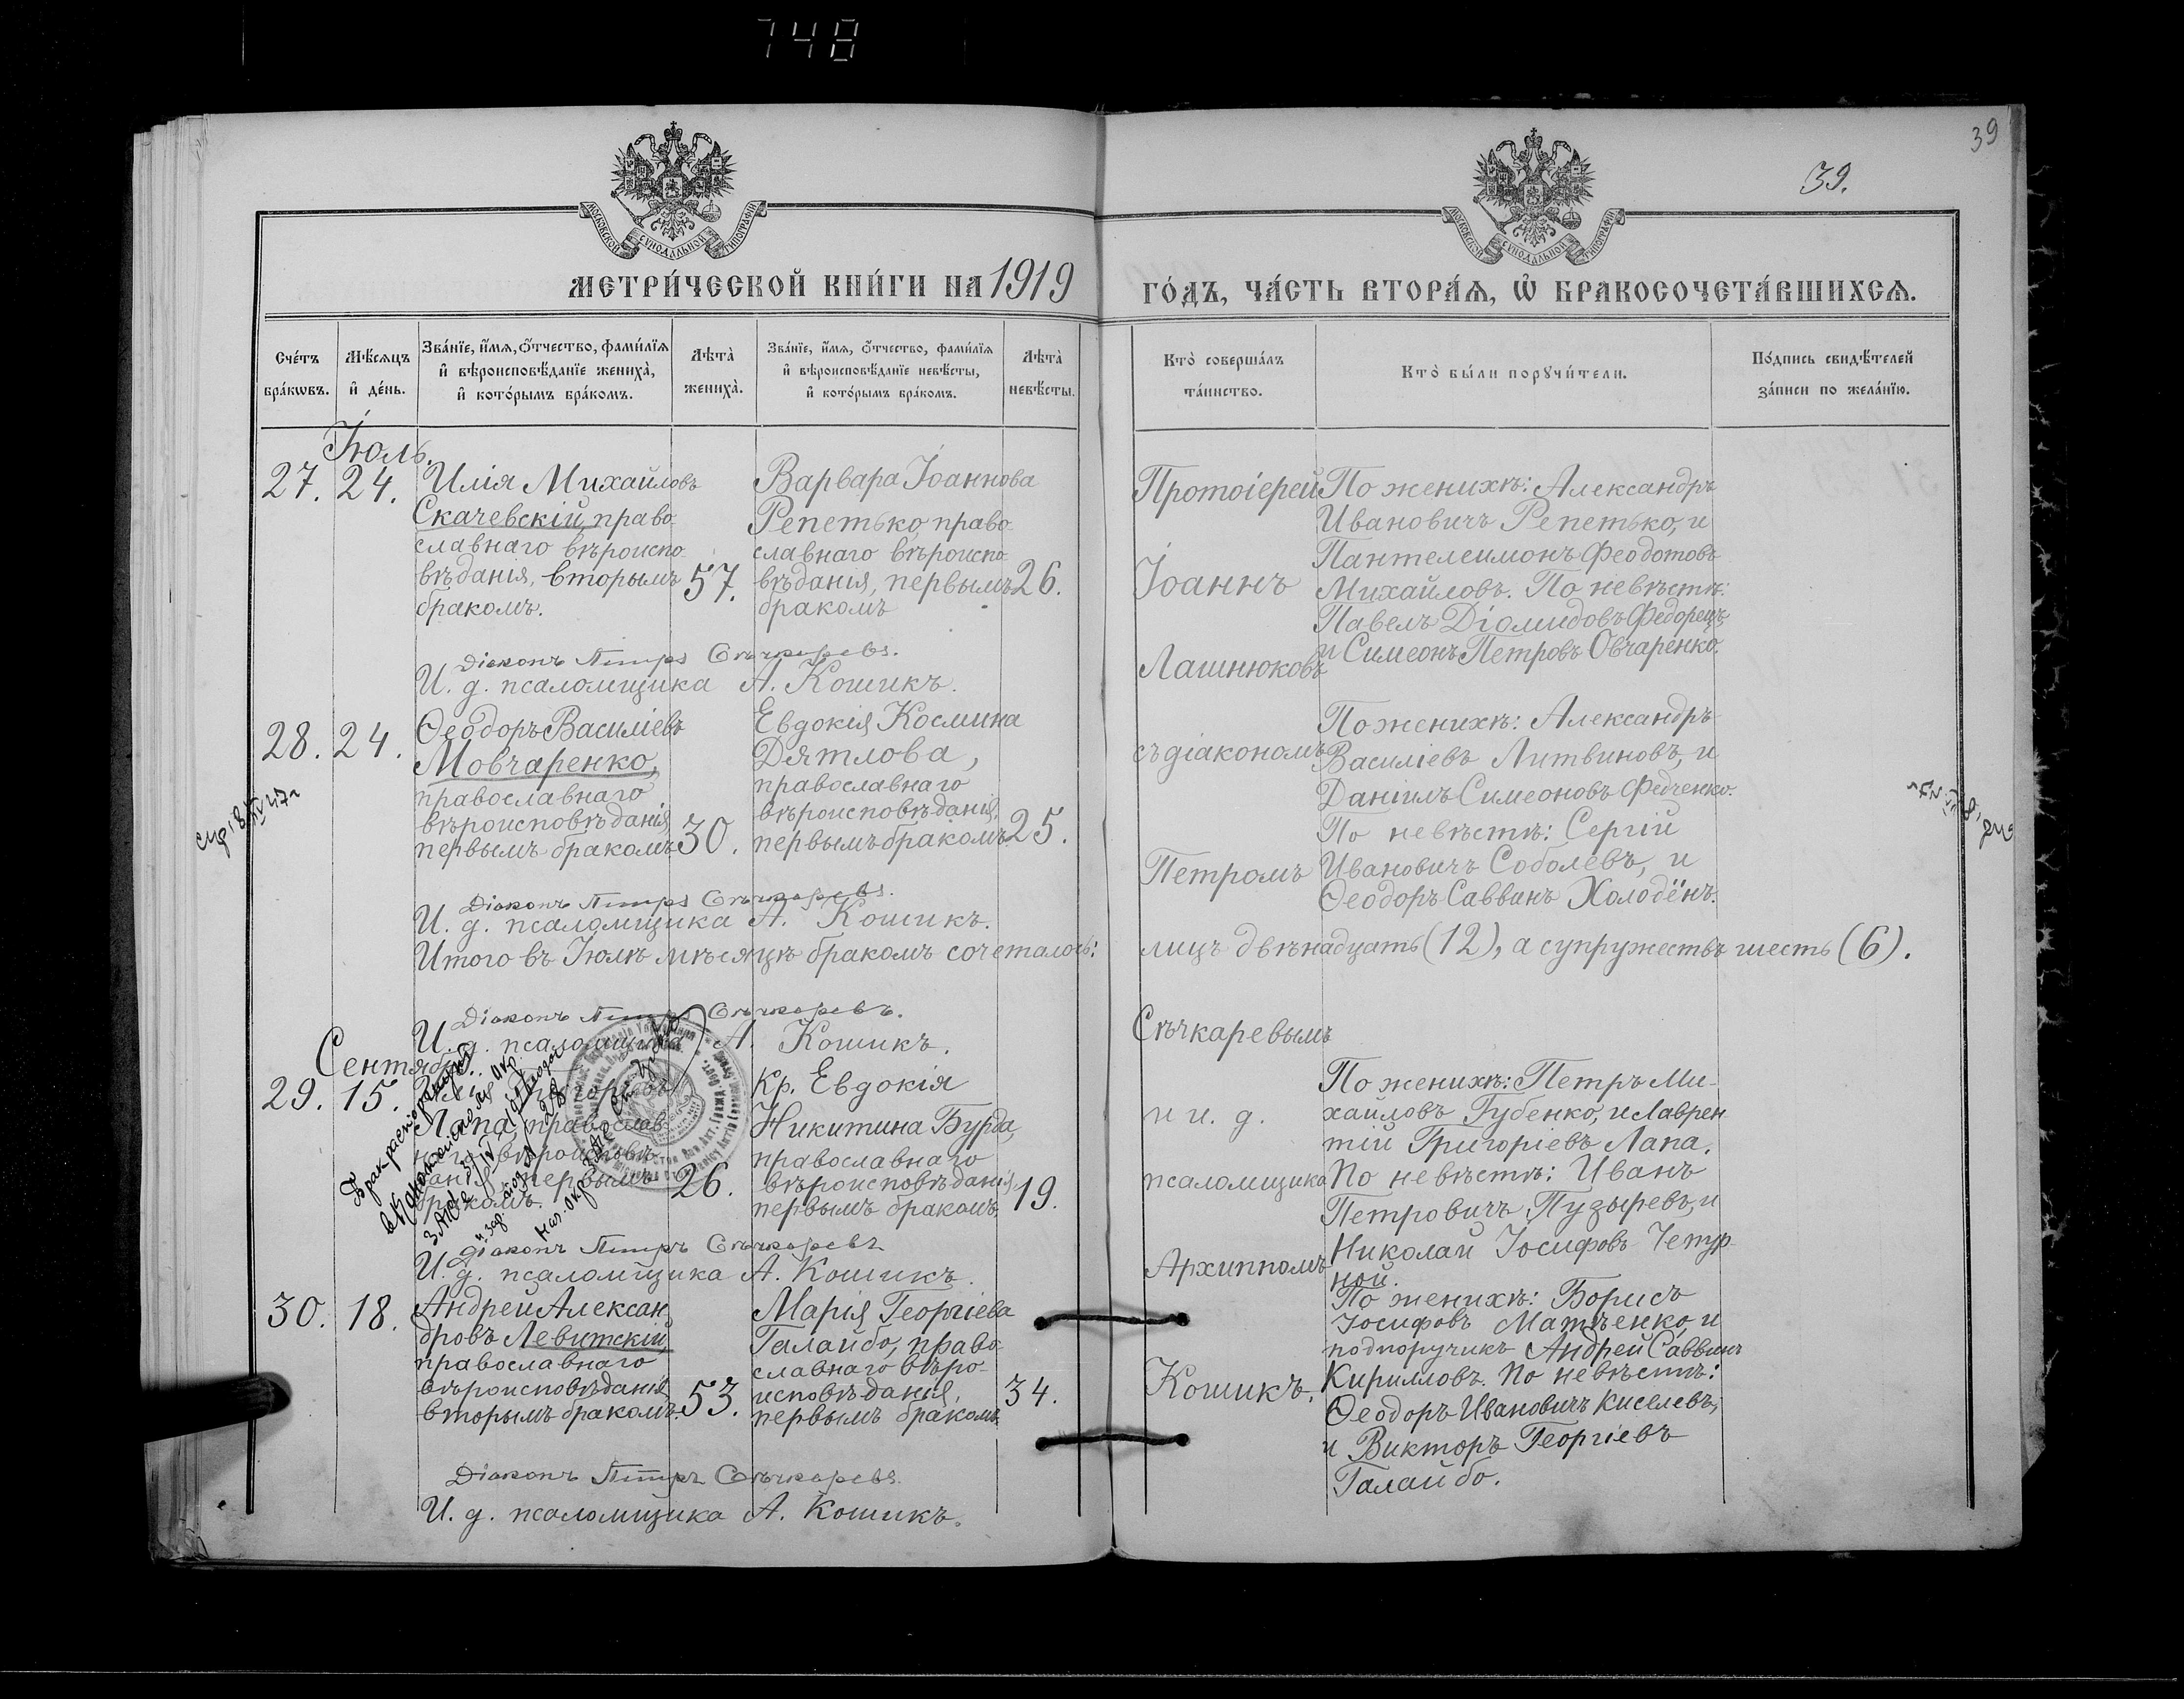 748
39
39.
МОСКОВСКОЙ СѴНОДАЛЬНОЙ ТИПОГРАФІИ
МОСКОВСКОЙ СѴНОДАЛЬНОЙ ТИПОГРАФІИ
МЕТРИ́ЧЕСКОЙ КНИ́ГИ НА 1919
ГО́ДЪ, ЧА́СТЬ ВТОРА́Ѧ, Ѽ БРАКОСОЧЕТА́ВШИХСѦ.
Сче́тъ бра́кѡвъ.
Мѣ́сяцъ и҆ де́нь.
Зва́нїе, и҆́мѧ, ѻ҆́тчество, фами́лїѧ и҆ вѣроисповѣ́данїе жениха̀, и҆ кото́рымъ бра́комъ.
Лѣта̀ жениха̀.
Зва́нїе, и҆́мѧ, ѻ҆́тчество, фами́лїѧ и҆ вѣроисповѣ́данїе невѣ́сты, и҆ кото́рымъ бра́комъ.
Лѣта̀ невѣ́сты.
Кто̀ соверша́лъ та́инство.
Кто̀ бы́ли порꙋчи́тели.
По́дпись свидѣ́телей за́писи по жела́нїю.
Іюль.
27. 24.
Илія Михайловъ
Скачевскій, право-
славнаго вѣроиспо-
вѣданія, вторымъ
бракомъ.
57.
Варвара Іоаннова
Репетько, право-
славнаго вѣроиспо-
вѣданія, первымъ
бракомъ
26.
Протоіерей
Іоаннъ
Лашнюковъ
По женихѣ: Александръ
Ивановичъ Репетько, и
Пантелеимонъ Феодотовъ
Михайловъ. По невѣстѣ:
Павелъ Діомидовъ Федорецъ,
и Симеонъ Петровъ Овчаренко.
Діаконъ Петръ Сѣчкаревъ.
И. д. псаломщика А. Кошикъ.
28. 24.
Ѳеодоръ Василіевъ
Мовчаренко,
православнаго
вѣроисповѣданія,
первымъ бракомъ
30.
Евдокія Космина
Дятлова,
православнаго
вѣроисповѣданія,
первымъ бракомъ
25.
съ діакономъ
Петромъ
По женихѣ: Александръ
Василіевъ Литвиновъ, и
Даніилъ Симеоновъ Федченко.
По невѣстѣ: Сергій
Ивановичъ Соболевъ, и
Ѳеодоръ Саввинъ Холодёнъ.
Діаконъ Петръ Сѣчкаревъ.
И. д. псаломщика А. Кошикъ.
Итого въ Іюлѣ мѣсяцѣ бракомъ сочеталось:
лицъ двѣнадцать (12), а супружествъ шесть (6).
Діаконъ Петръ Сѣчкаревъ.
И. д. псаломщика А. Кошикъ.
Сѣчкаревымъ
Сентябрь.
29. 15.
Лапа, православ-
первымъ
бракомъ.
26.
Кр. Евдокія
Никитина Бурда,
православнаго
вѣроисповѣданія,
первымъ бракомъ
19.
и и. д.
псаломщика
Архиппомъ
По женихѣ: Петръ Ми-
хайловъ Губенко, и Лаврен-
тій Григоріевъ Лапа.
По невѣстѣ: Иванъ
Петровичъ Пузыревъ, и
Николай Іосифовъ Чепур-
ной.
Діаконъ Петръ Сѣчкаревъ
И. д. псаломщика А. Кошикъ.
30. 18.
Андрей Алексан-
дровъ Левитскій,
православнаго
вѣроисповѣданія,
вторымъ бракомъ.
53.
Марія Георгіева
Галайбо, право-
славнаго вѣро-
исповѣданія,
первымъ бракомъ
34.
Кошикъ.
По женихѣ: Борисъ
Іосифовъ Матченко, и
подпоручикъ Андрей Саввинъ
Кирилловъ. По невѣстѣ:
Ѳеодоръ Ивановичъ Киселевъ,
и Викторъ Георгіевъ
Галайбо.
Діаконъ Петръ Сѣчкаревъ.
И. д. псаломщика А. Кошикъ.